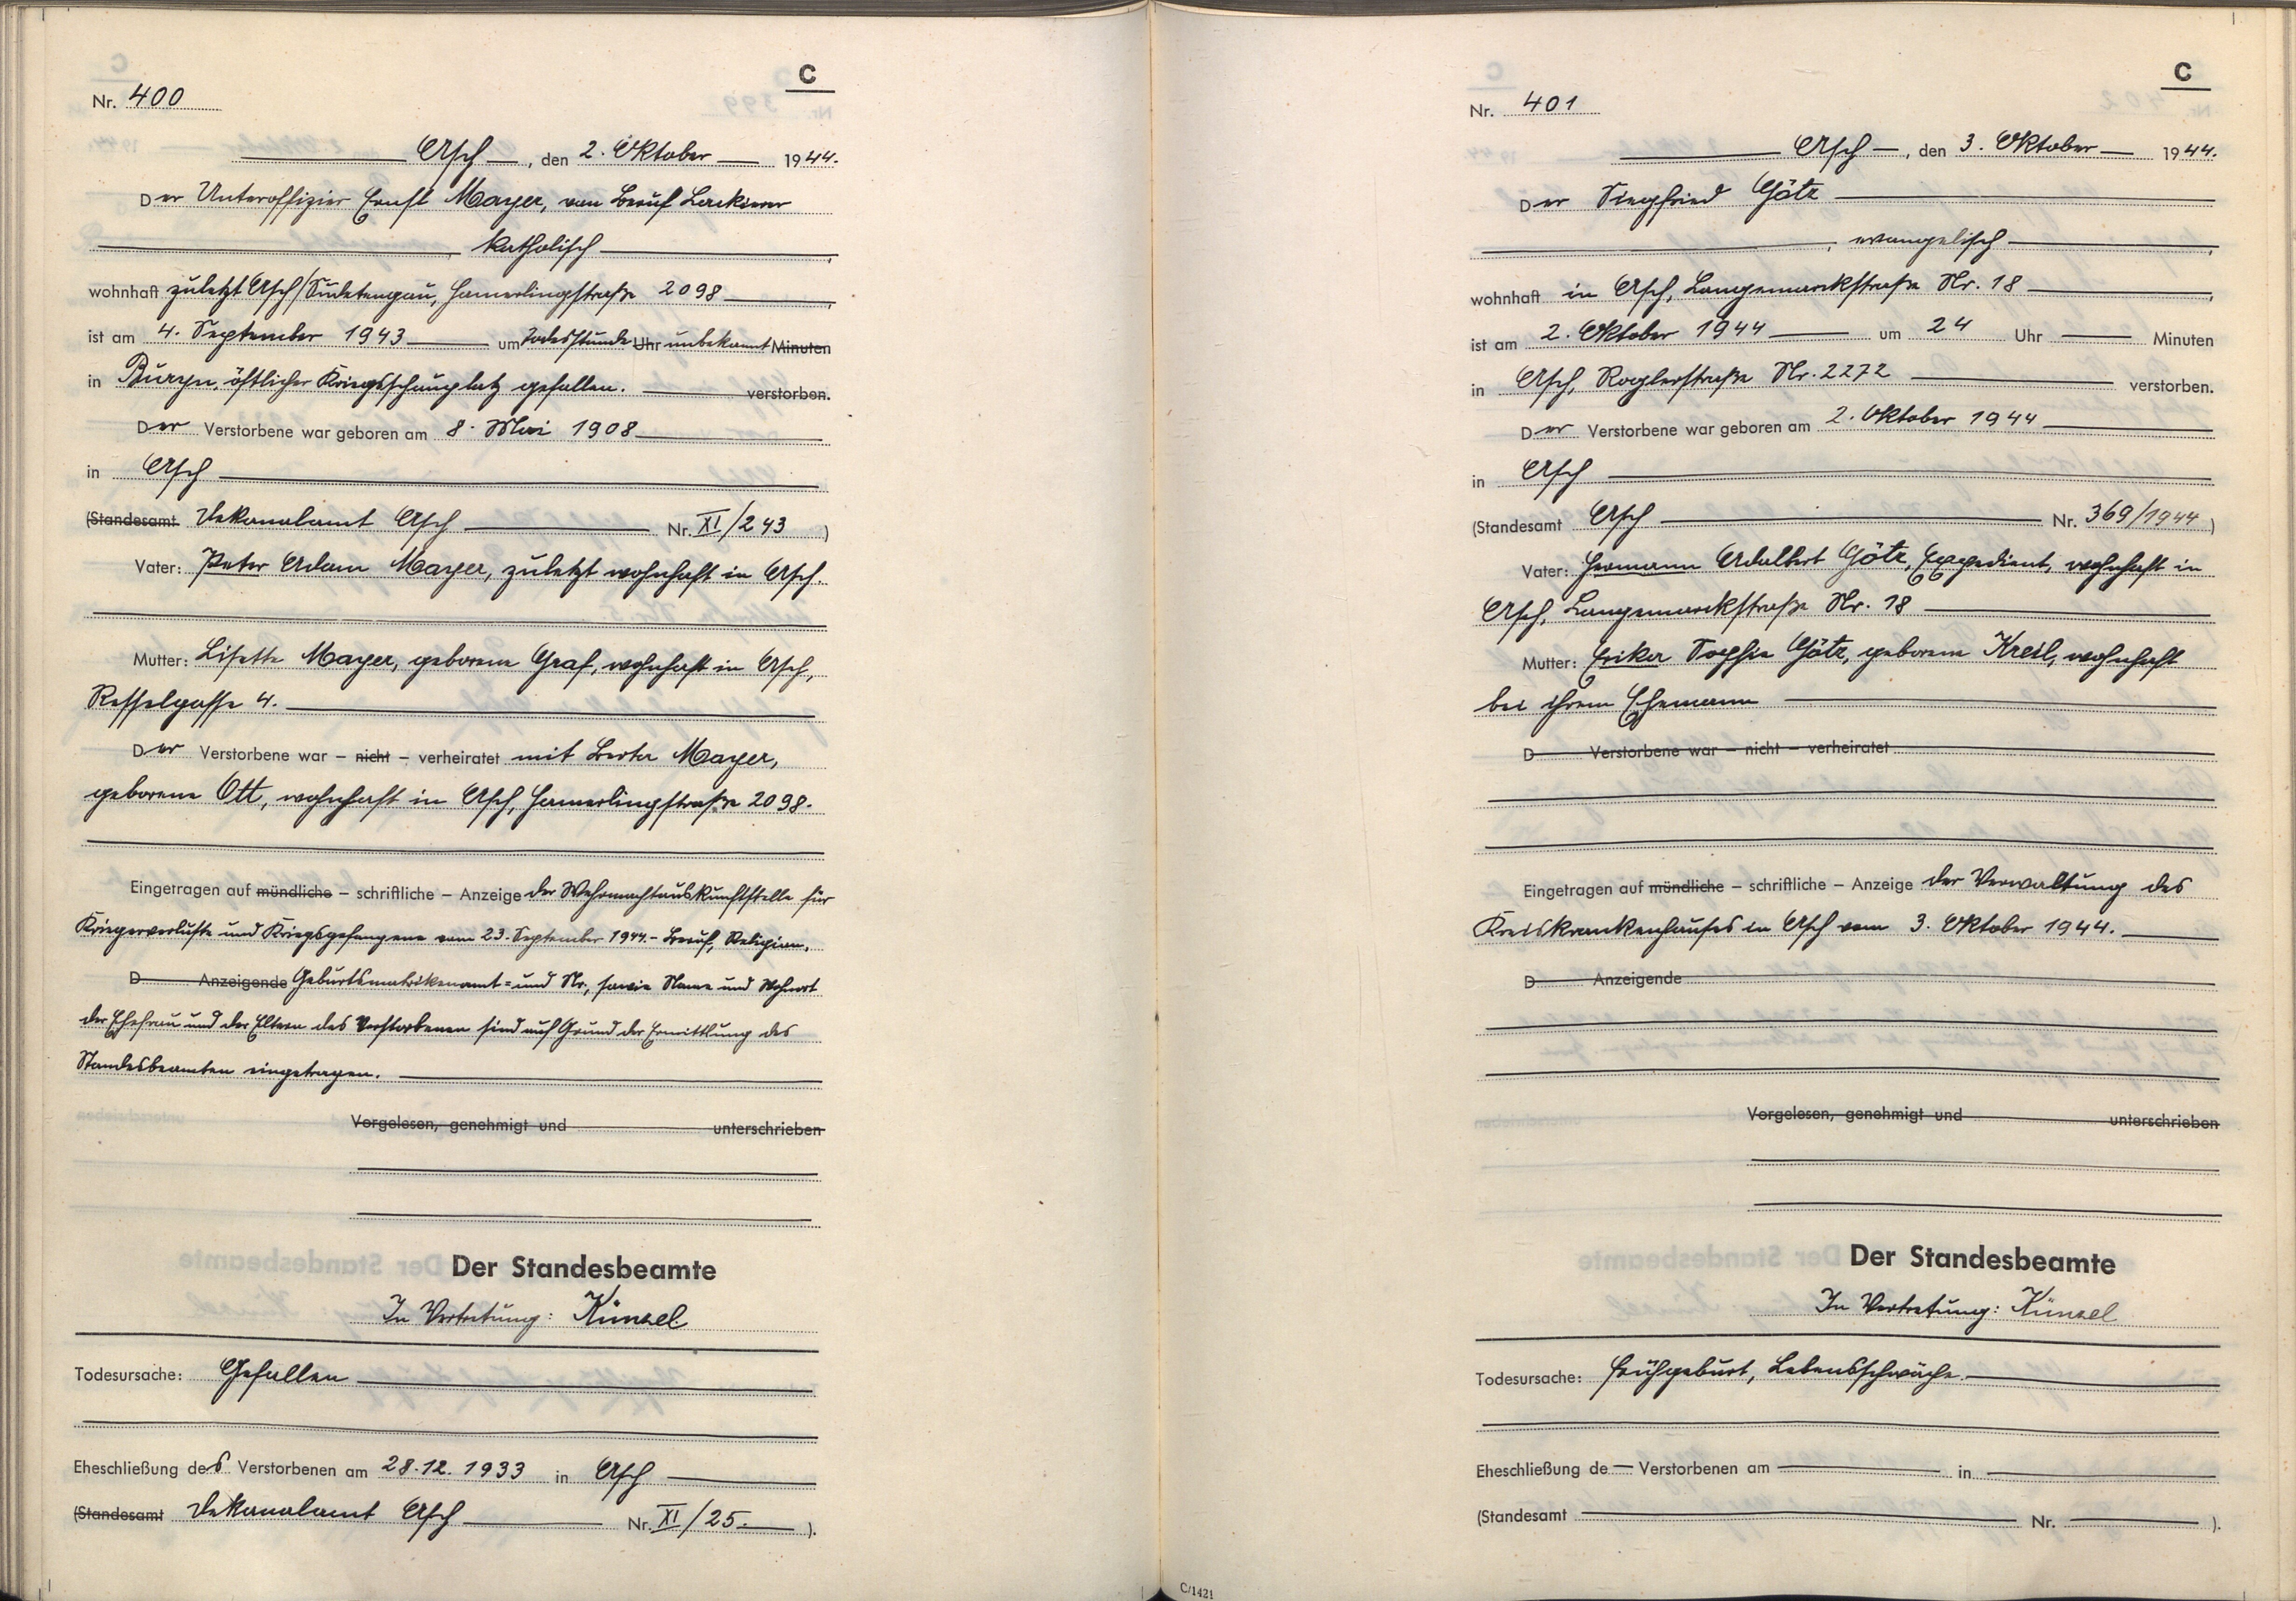 C
Nr. 400
Asch, den 2. Oktober 1944.
Der Unteroffizier Ernst Mayer, von Beruf Lackierer
katholisch,
wohnhaft zuletzt Asch/Sudetengau, Hamerlingstraße 2098,
ist am 4. September 1943 um Todesstunde Uhr unbekannt Minuten
in Buryn, östlicher Kriegsschauplatz gefallen. verstorben.
Der Verstorbene war geboren am 8. Mai 1908
in Asch
(Standesamt Dekanalamt Asch Nr. XI/243)
Vater: Peter Adam Mayer, zuletzt wohnhaft in Asch.
Mutter: Lisette Mayer, geborene Graf, wohnhaft in Asch,
Resselgasse 4.
Der Verstorbene war – nicht – verheiratet mit Berta Mayer,
geborene Ott, wohnhaft in Asch, Hamerlingstraße 2098.
Eingetragen auf mündliche – schriftliche – Anzeige der Wehrmachtauskunftstelle für
Kriegerverluste und Kriegsgefangene vom 23. September 1944. – Beruf, Religion,
D Anzeigende Geburtsmatrikenamt= und Nr., sowie Name und Wohnort
der Ehefrau und der Eltern des Verstorbenen sind auf Grund der Ermittlung des
Standesbeamten eingetragen.
Vorgelesen, genehmigt und unterschrieben
Der Standesbeamte
In Vertretung: Künzel
Todesursache: Gefallen
Eheschließung des Verstorbenen am 28.12.1933 in Asch
(Standesamt Dekanalamt Asch Nr. XI/25.).
C
Nr. 401
Asch, den 3. Oktober 1944.
Der Siegfried Götz
, evangelisch,
wohnhaft in Asch, Langemarckstraße Nr. 18,
ist am 2. Oktober 1944 um 24 Uhr Minuten
in Asch, Roglerstraße Nr. 2272 verstorben.
Der Verstorbene war geboren am 2. Oktober 1944
in Asch
(Standesamt Asch Nr. 369/1944)
Vater: Hermann Adalbert Götz, Expedient, wohnhaft in
Asch, Langemarckstraße Nr. 18
Mutter: Erika Sophie Götz, geborene Kreil, wohnhaft
bei ihrem Ehemann
D Verstorbene war – nicht – verheiratet
Eingetragen auf mündliche – schriftliche – Anzeige der Verwaltung des
Kreiskrankenhauses in Asch vom 3. Oktober 1944.
D Anzeigende
Vorgelesen, genehmigt und unterschrieben
Der Standesbeamte
In Vertretung: Künzel
Todesursache: Frühgeburt, Lebensschwäche.
Eheschließung de Verstorbenen am in
(Standesamt Nr. ).
C/1421